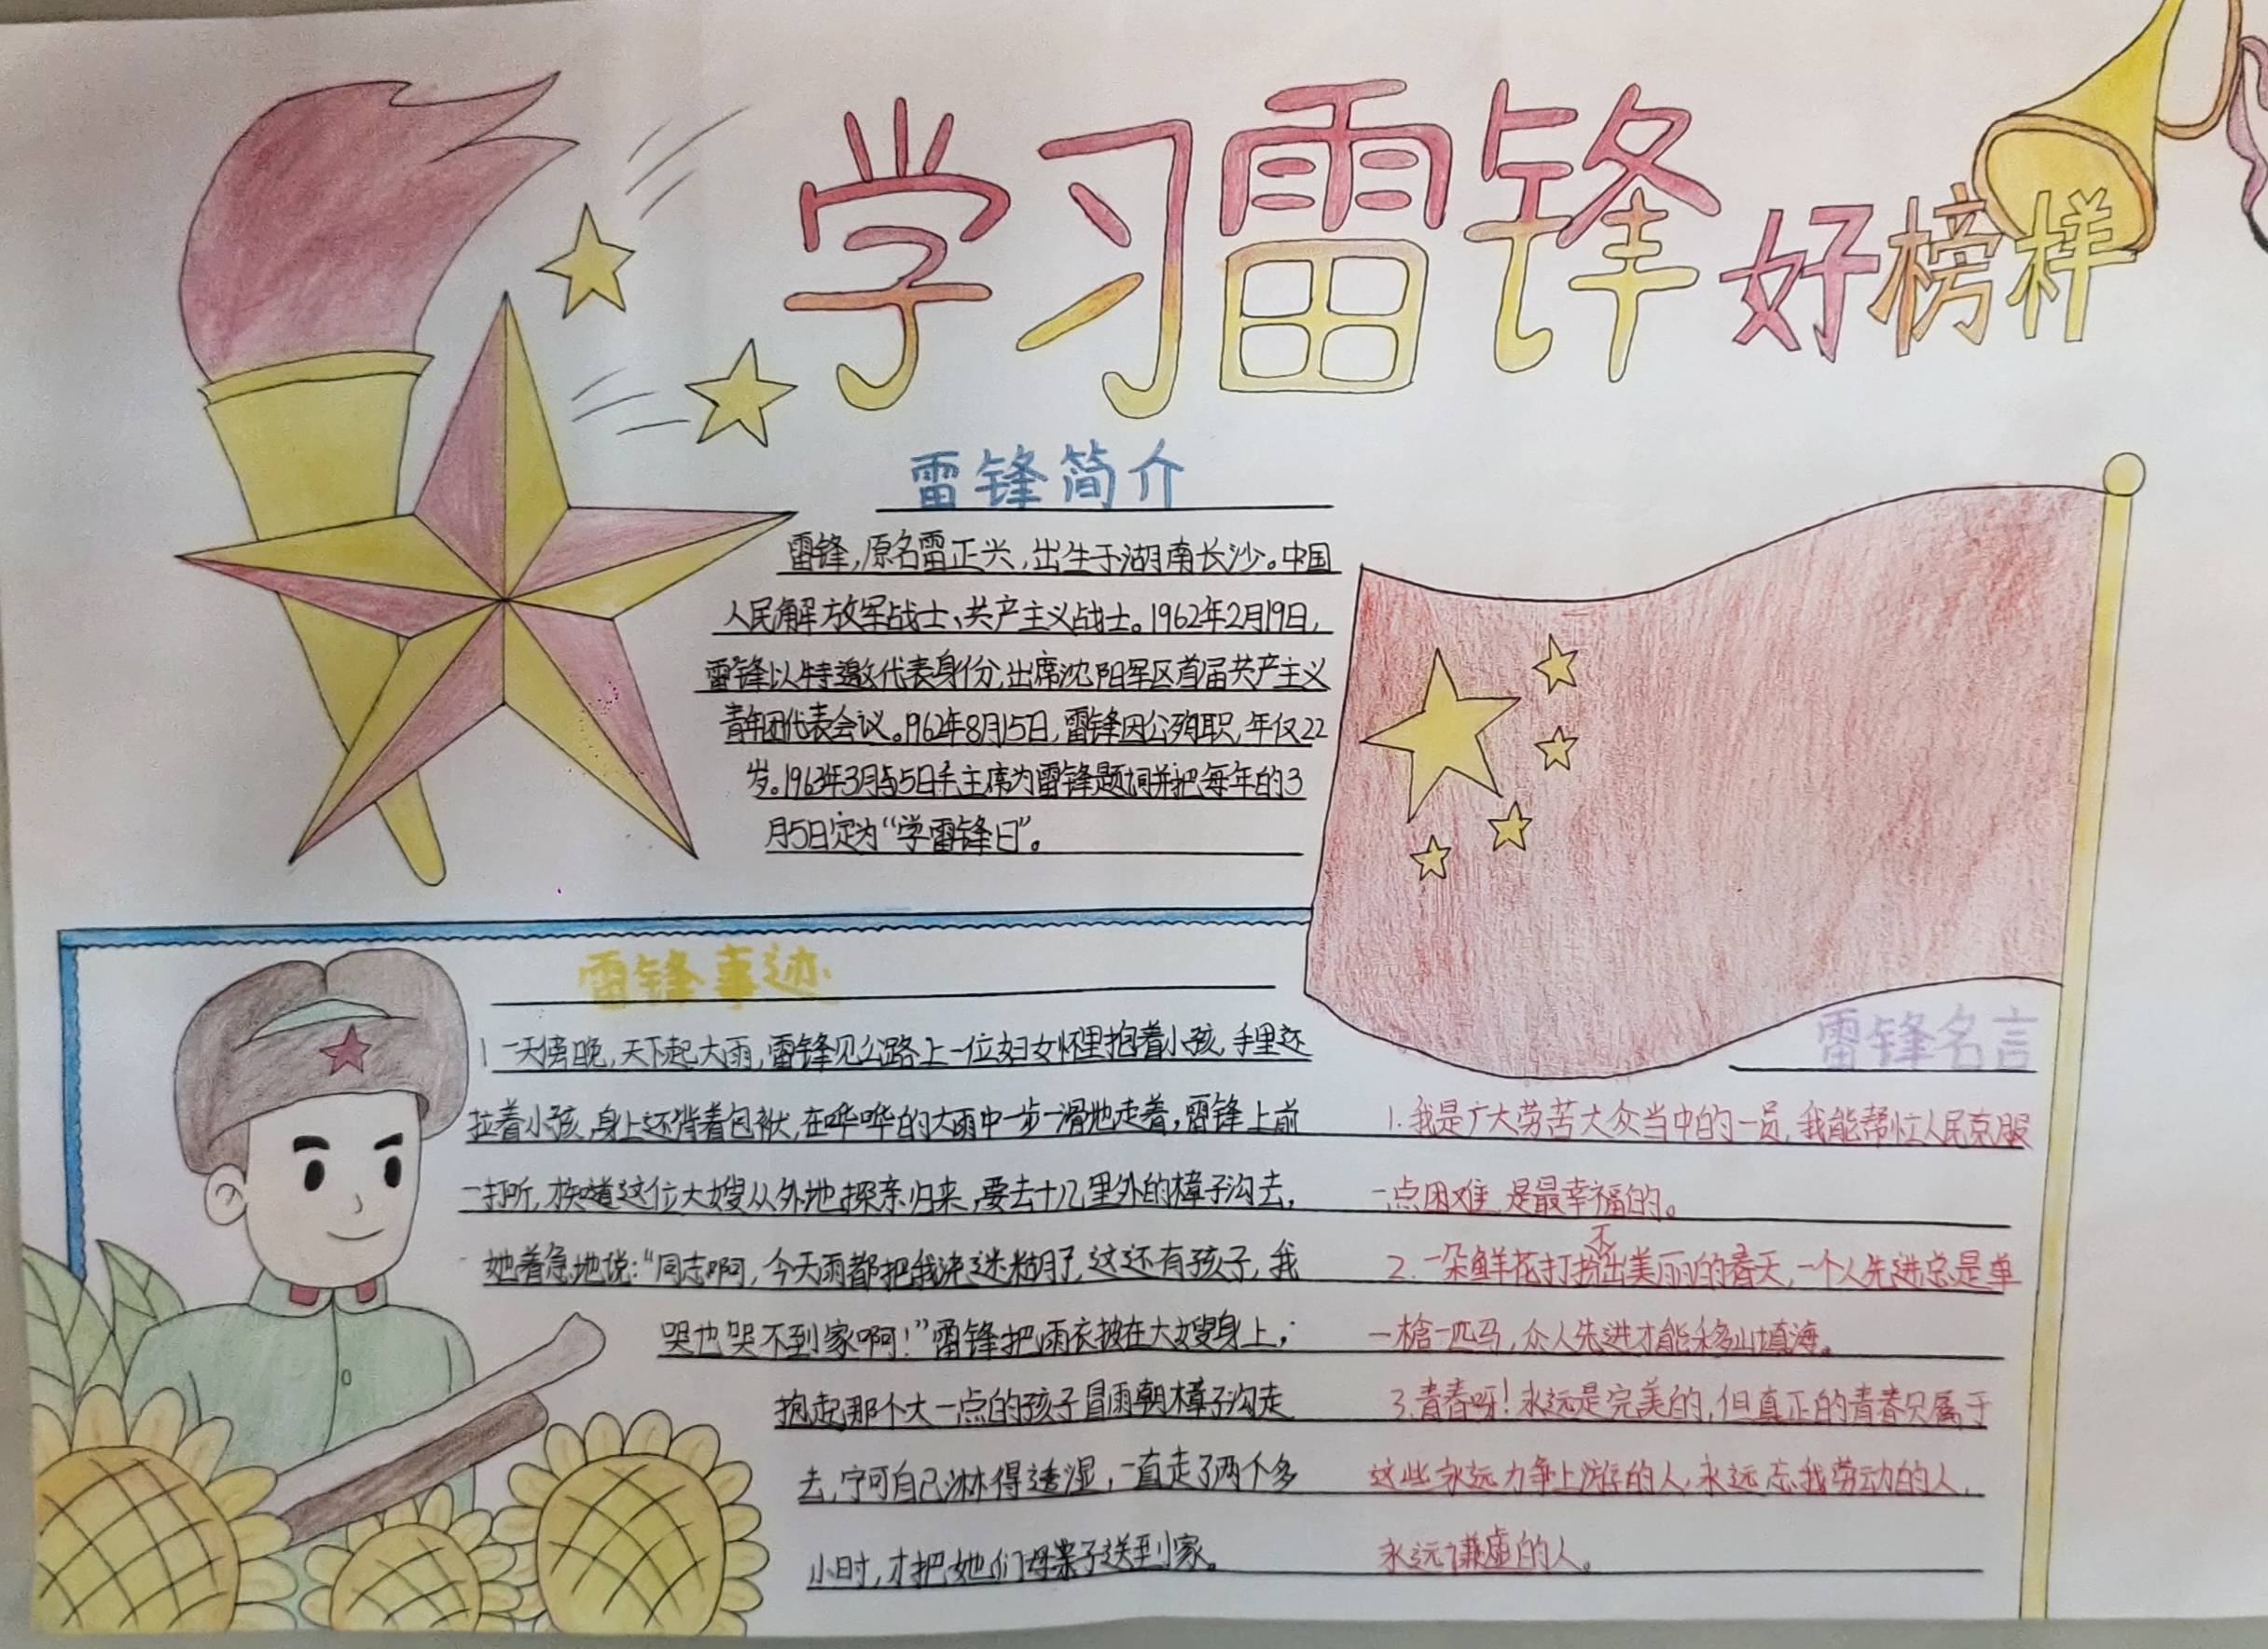 学习雷锋好榜样
雷锋简介
雷锋,原名雷正兴,出生于湖南长沙。中国
人民解放军战士、共产主义战士。1962年2月19日,
雷锋以特邀代表身份,出席沈阳军区首届共产主义
青年团代表会议。1962年8月15日,雷锋因公殉职,年仅22
岁。1963年3月5日毛主席为雷锋题词并把每年的3
月5日定为“学雷锋日”。
雷锋事迹
1 一天傍晚,天下起大雨,雷锋见公路上一位妇女怀里抱着小孩,手里还
拉着小孩,身上还背着包袱,在哗哗的大雨中一步一滑地走着,雷锋上前
一打听,才知道这位大嫂从外地探亲归来,要去十几里外的樟子沟去,
她着急地说:“同志啊,今天雨都把我浇迷糊了,这还有孩子,我
哭也哭不到家啊!”雷锋把雨衣披在大嫂身上,
抱起那个大一点的孩子冒雨朝樟子沟走
去,宁可自己淋得透湿,一直走了两个多
小时,才把她们母亲子送到家。
雷锋名言
1.我是广大劳苦大众当中的一员,我能帮忙人民克服
一点困难,是最幸福的。
2.一朵鲜花打扮不出美丽的春天,一个人先进总是单
一枪一匹马,众人先进才能移山填海。
3.青春呀!永远是完美的,但真正的青春只属于
这些永远力争上游的人,永远忘我劳动的人,
永远谦虚的人。